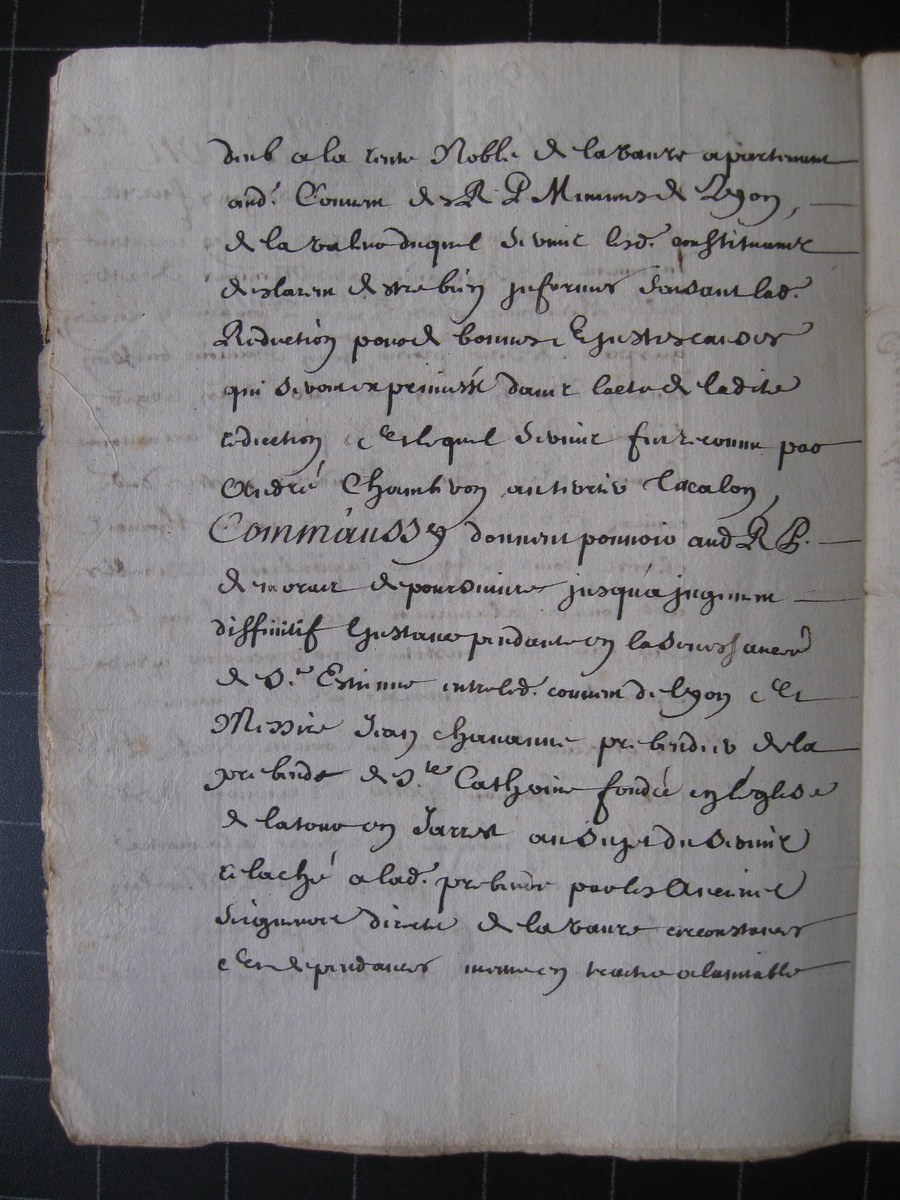 deub a la rente Noble de la vaure apartenant
aud.t Couvent des R P Minimes de Lyon,
de la valeur duquel servis lesd. constituants
declarent destre bien informés faisant lad.
Reduction pour de bonnes et justes causes
qui seront exprimées dans lacte de ladite
reduction et lequel servis fut reconnu par
André Chambvon
Comm'aussy donnent pouvoir aud R P.
de poursuivre jusqu'a jugement
diffinitif linstance pendante en la Seneschaucé
de S.t Estienne entre led. couvent de lyon et
Messire Jean Chavanne prebendier de la
prebende de S.te Catherine fondée en leglise
de latour en Jarrest au sujet du servis
relaché a lad. prebende par les Anciens
Seigneurs directs de la vaure circonstances
et dependances mesme en traitter a lamiable